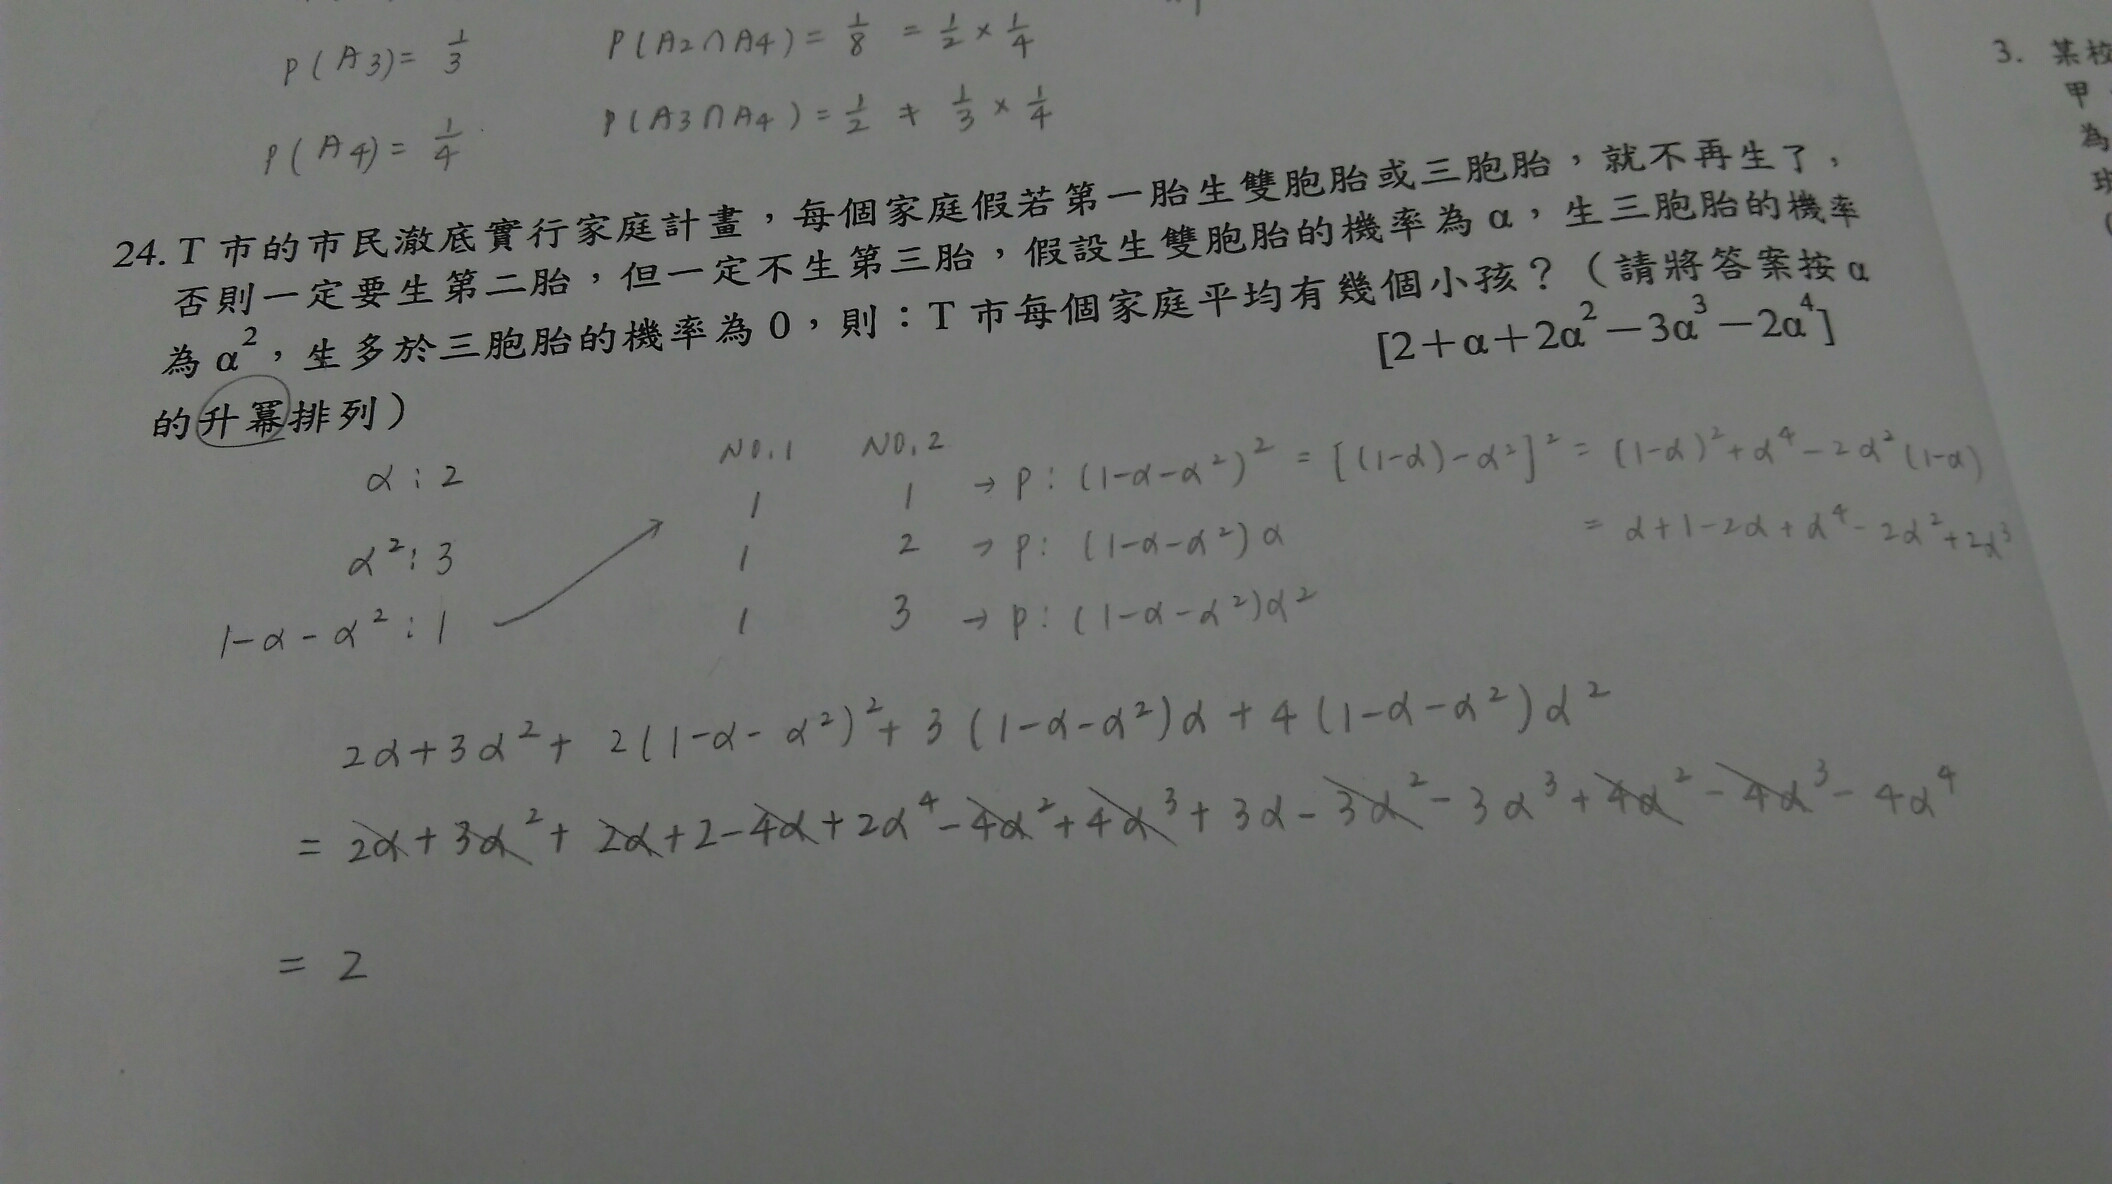 P(A3)= 1/3
P(A2∩A4)= 1/8 = 1/2 × 1/4
P(A4)= 1/4
P(A3∩A4)= 1/2 ≠ 1/3 × 1/4
24. T 市的市民澈底實行家庭計畫，每個家庭假若第一胎生雙胞胎或三胞胎，就不再生了，
否則一定要生第二胎，但一定不生第三胎，假設生雙胞胎的機率為 α，生三胞胎的機率
為 α²，生多於三胞胎的機率為 0，則：T 市每個家庭平均有幾個小孩？（請將答案按 α
的升冪排列）
[2＋α＋2α²－3α³－2α⁴]
α : 2
α² : 3
1-α-α² : 1
NO.1 NO.2
1 1 → P: (1-α-α²)² = [(1-α)-α²]² = (1-α)²+α⁴-2α²(1-α)
= α+1-2α+α⁴-2α²+2α³
1 2 → P: (1-α-α²)α
1 3 → P: (1-α-α²)α²
2α+3α²+ 2(1-α-α²)²+ 3(1-α-α²)α + 4(1-α-α²)α²
= 2α+3α²+ 2α+2-4α+2α⁴-4α²+4α³+3α-3α²-3α³+4α²-4α³-4α⁴
= 2
3. 某校
甲
為